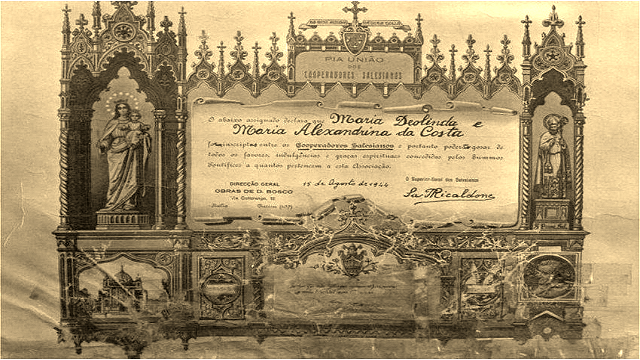 PIA UNIÃO
DOS
COOPERADORES SALESIANOS
O abaixo assignado declara que Maria Deolinda e
Maria Alexandrina da Costa
foram inscriptas entre os Cooperadores Salesianos e portanto poderão gosar de
todos os favores, indulgências e graças espirituaes concedidos pelos Summos
Pontifices a quantos pertencem a esta Associação.
DIRECÇÃO GERAL
OBRAS DE D. BOSCO
Via Cottolengo, 32
Italia Torino (109)
15 de Agosto de 1944
O Superior Geral dos Salesianos